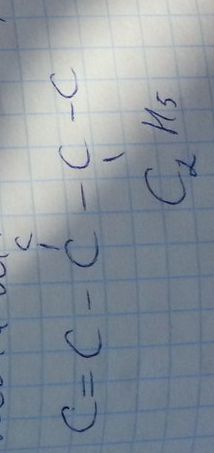 C
C=C-C-C-C
C₂H₅